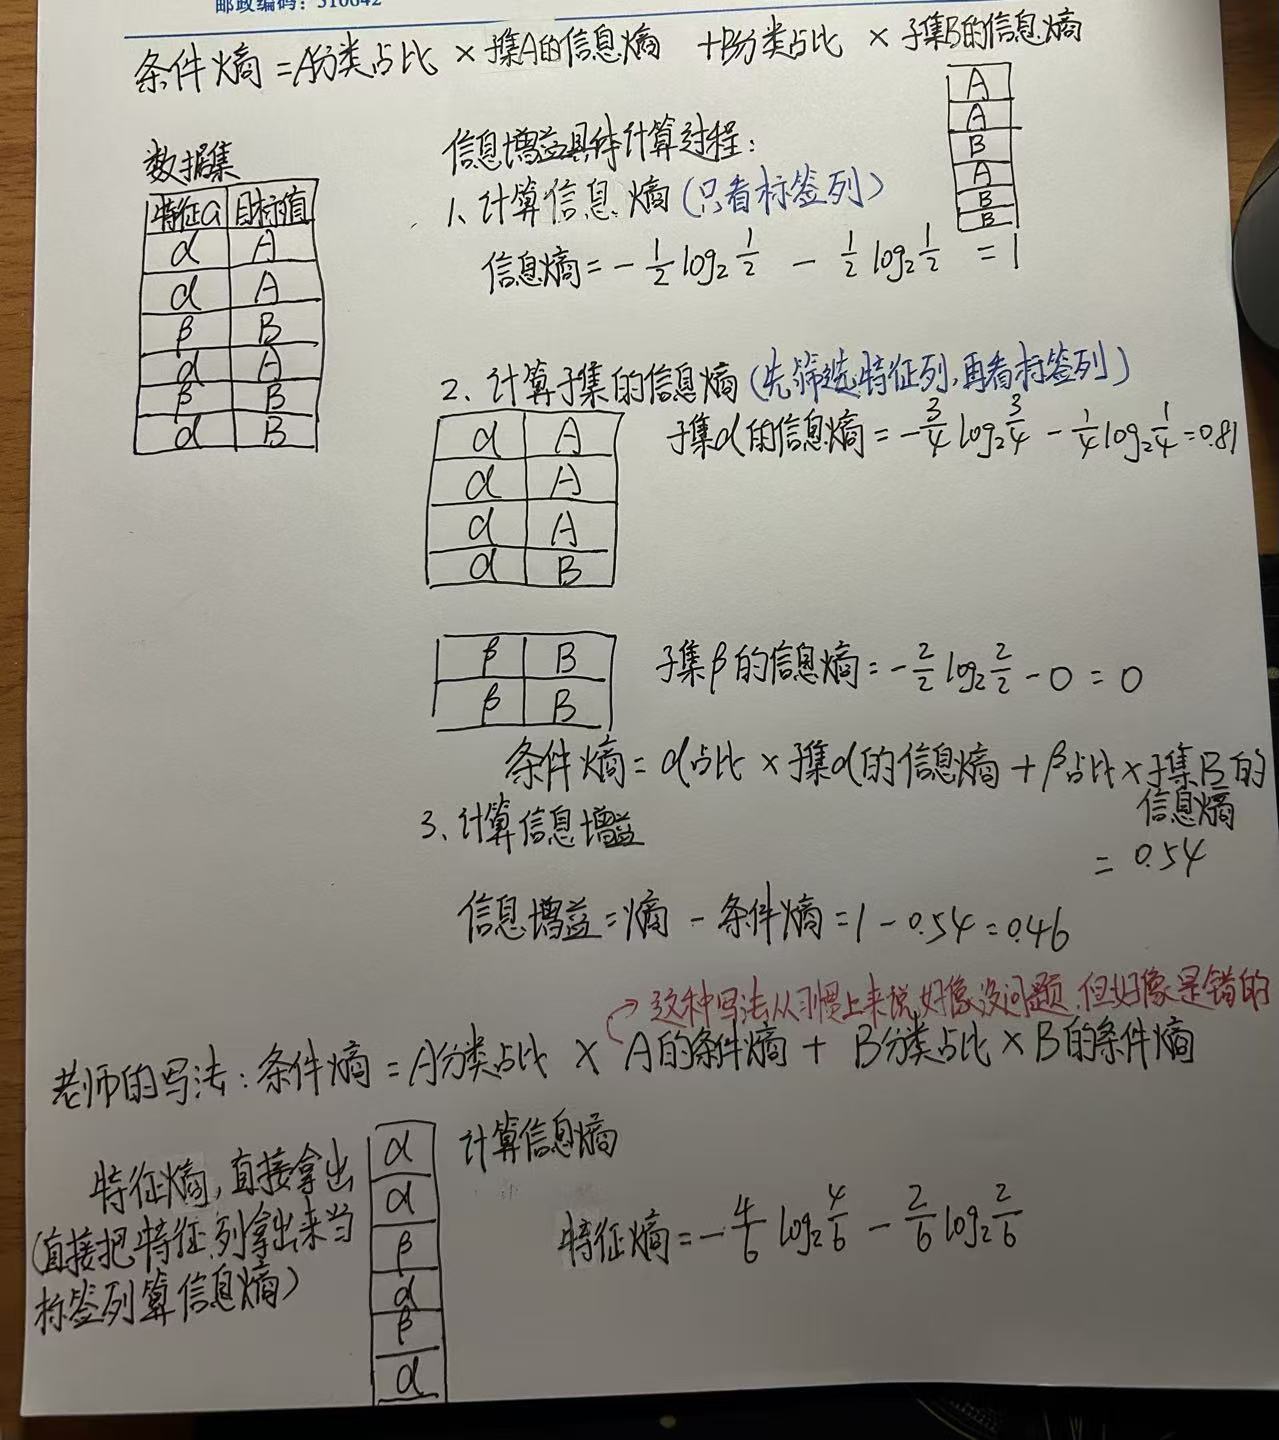 邮政编码：310042
条件熵=A分类占比 × 子集A的信息熵 +B分类占比 × 子集B的信息熵
A
A
B
A
B
B
数据集
特征a 目标值
α A
α A
β B
α A
β B
α B
信息增益具体计算过程：
1、计算信息熵（只看标签列）
信息熵=-1/2 log₂ 1/2 - 1/2 log₂ 1/2 =1
2、计算子集的信息熵（先筛选特征列，再看标签列）
α A
α A
α A
α B
子集α的信息熵=-3/4 log₂ 3/4 - 1/4 log₂ 1/4=0.81
β B
β B
子集β的信息熵=-2/2 log₂ 2/2 -0 = 0
条件熵=α占比×子集α的信息熵+β占比×子集B的
信息熵
= 0.54
3、计算信息增益
信息增益=熵 - 条件熵=1-0.54=0.46
这种写法从习惯上来说好像没问题，但好像是错的
老师的写法：条件熵=A分类占比 × A的条件熵+ B分类占比×B的条件熵
特征熵，直接拿出
（直接把特征列拿出来当
标签列算信息熵）
α
α
β
α
β
α
计算信息熵
特征熵=-4/6 log₂ 4/6 - 2/6 log₂ 2/6